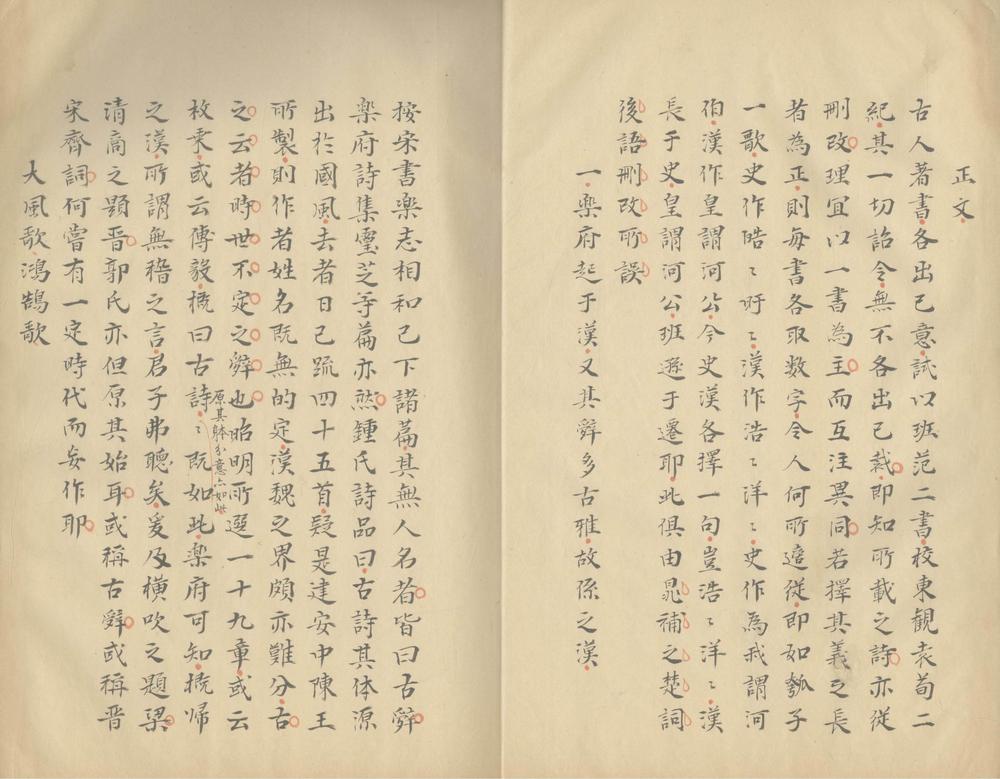 正文
古人著書各出己意試以班范二書校東観袁荀二
紀其一切詔令無不各出己裁即知所載之詩亦従
刪改理宜以一書為主而互注異同若擇其義之長
者為正則每書各取数字令人何所適従即如瓠子
一歌史作皓〻旰〻漢作浩〻洋〻史作為我謂河
伯漢作皇謂河公今史漢各擇一句豈浩〻洋〻漢
長于史皇謂河公班遜于遷耶此俱由晁補之楚詞
後語刪改所誤
一楽府起于漢又其辤多古雅故係之漢
按宋書楽志相和已下諸篇其無人名者皆曰古辤
楽府詩集霊芝寺篇亦然鍾氏詩品曰古詩其体源
出於國風去者日已疏四十五首疑是建安中陳王
所製則作者姓名既無的定漢魏之界頗亦難分古
之云者時世不定之辤也昭明所選一十九章或云
原其躰分意亦如此
枚乗或云傅毅概曰古詩〻既如此楽府可知概帰
之漢所謂無稽之言君子弗聴矣爰及横吹之題梁
清商之題晋郭氏亦但原其始耳或称古辤或称晋
宋齊詞何嘗有一定時代而妄作耶
大風歌鴻鵠歌